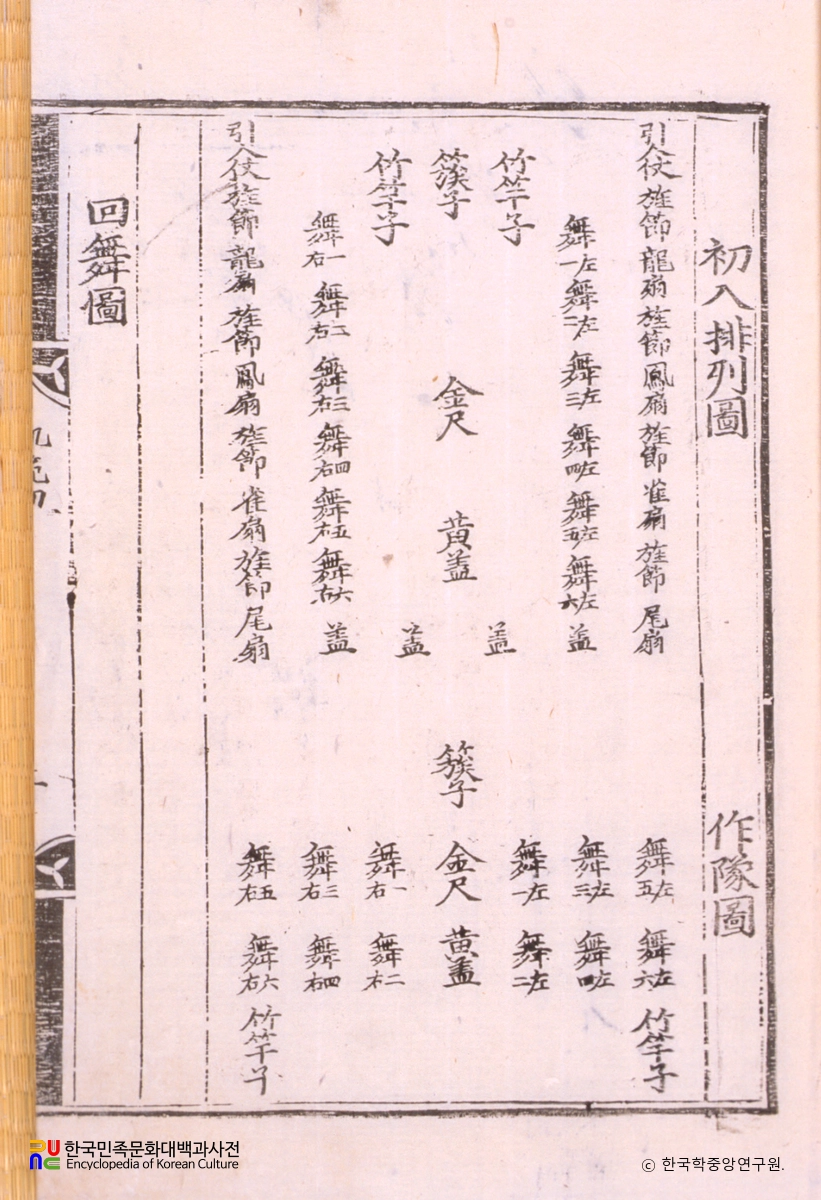 初入排列圖
作隊圖
引人仗 旌節 龍扇 旌節 鳳扇 旌節 雀扇 旌節 尾扇
舞左一 舞左二 舞左三 舞左四 舞左五 舞左六 盖
竹竿子
盖
簇子 金尺 黃盖
竹竿子
盖
舞右一 舞右二 舞右三 舞右四 舞右五 舞右六 盖
引人仗 旌節 龍扇 旌節 鳳扇 旌節 雀扇 旌節 尾扇
舞左五 舞左六 竹竿子
舞左三 舞左四
舞左一 舞左二
簇子 金尺 黃盖
舞右一 舞右二
舞右三 舞右四
舞右五 舞右六 竹竿子
回舞圖
한국민족문화대백과사전
Encyclopedia of Korean Culture
© 한국학중앙연구원.